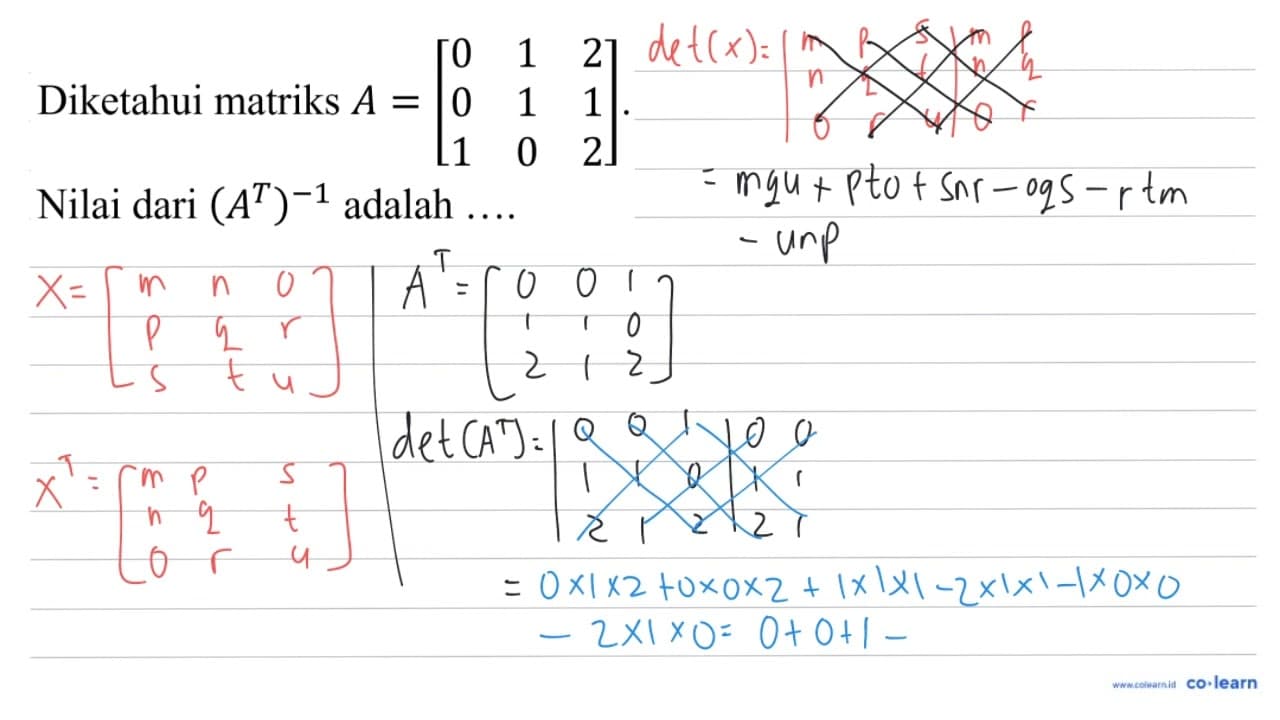 Diketahui matriks A = [0 1 2
0 1 1
1 0 2].
Nilai dari (Aᵀ)⁻¹ adalah ....
det(x) = | m p s | m p
n q t | n q
o r u | o r
= mqu + pto + snr - oqs - rtm
- unp
X = [m n o
p q r
s t u]
Xᵀ = [m p s
n q t
o r u]
Aᵀ = [0 0 1
1 1 0
2 1 2]
det(Aᵀ) = | 0 0 1 | 0 0
1 1 0 | 1 1
2 1 2 | 2 1
= 0×1×2 + 0×0×2 + 1×1×1 - 2×1×1 - 1×0×0
- 2×1×0 = 0 + 0 + 1 -
www.colearn.id co·learn